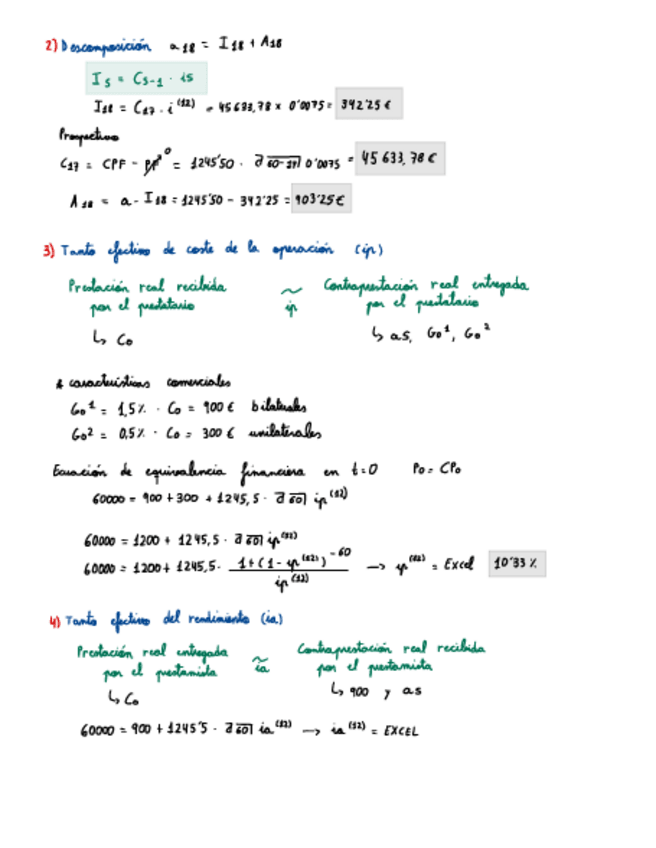 2) Descomposición a18 = I18 + A18
Is = Cs-1 · is
I18 = C17 · i(12) = 45633,78 x 0'0075 = 342'25 €
Prospectivo
C17 = CPF - PF 0 = 1245'50 · a 60-17 0'0075 = 45 633,78 €
A18 = a - I18 = 1245'50 - 342'25 = 903'25 €
3) Tanto efectivo de coste de la operación (ip)
Prestación real recibida por el prestatario ~ ip Contraprestación real entregada por el prestatario
↳ Co ↳ as, Go1, Go2
* características comerciales
Go1 = 1,5% · Co = 900 € bilaterales
Go2 = 0,5% · Co = 300 € unilaterales
Ecuación de equivalencia financiera en t=0 Po = CPo
60000 = 900 + 300 + 1245,5 · a 60 ip(12)
60000 = 1200 + 1245,5 · a 60 ip(12)
60000 = 1200 + 1245,5 · 1+(1-ip(12))-60 / ip(12) → ip(12) = Excel 10'33 %
4) Tanto efectivo del rendimiento (ia)
Prestación real entregada por el prestamista ~ ia Contraprestación real recibida por el prestamista
↳ Co ↳ 900 y as
60000 = 900 + 1245'5 · a 60 ia(12) → ia(12) = EXCEL